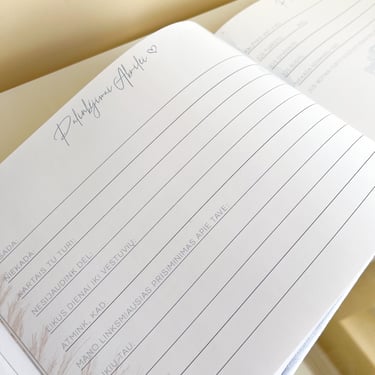 Palinkėjimai
SADA
NIEKADA
KARTAIS TU TURI
NESIJAUDINK DĖL
LIKUS DIENAI IKI VESTUVIŲ
ATMINK, KAD
MANO LINKSMIAUSIAS PRISIMINIMAS APIE TAVE
IKIU TAU